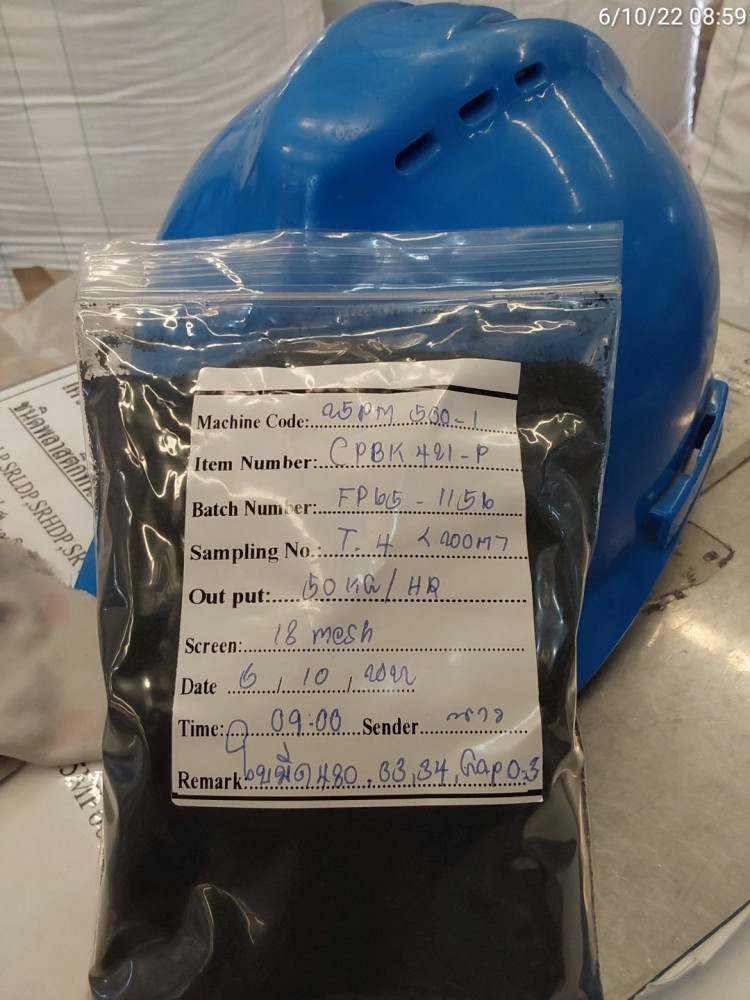 6/10/22 08:59
Machine Code: 25PM 500-1
Item Number: CPBK 421-P
Batch Number: FP65-1156
Sampling No.: T. 4 <200m7
Out put: 50 KG/HR
Screen: 18 mesh
Date 6 / 10 / 2022
Time: 09:00 Sender
Remark ใบมีด 480, 33, 34, Gap 0.3
SRLDP, SRHDP, SR